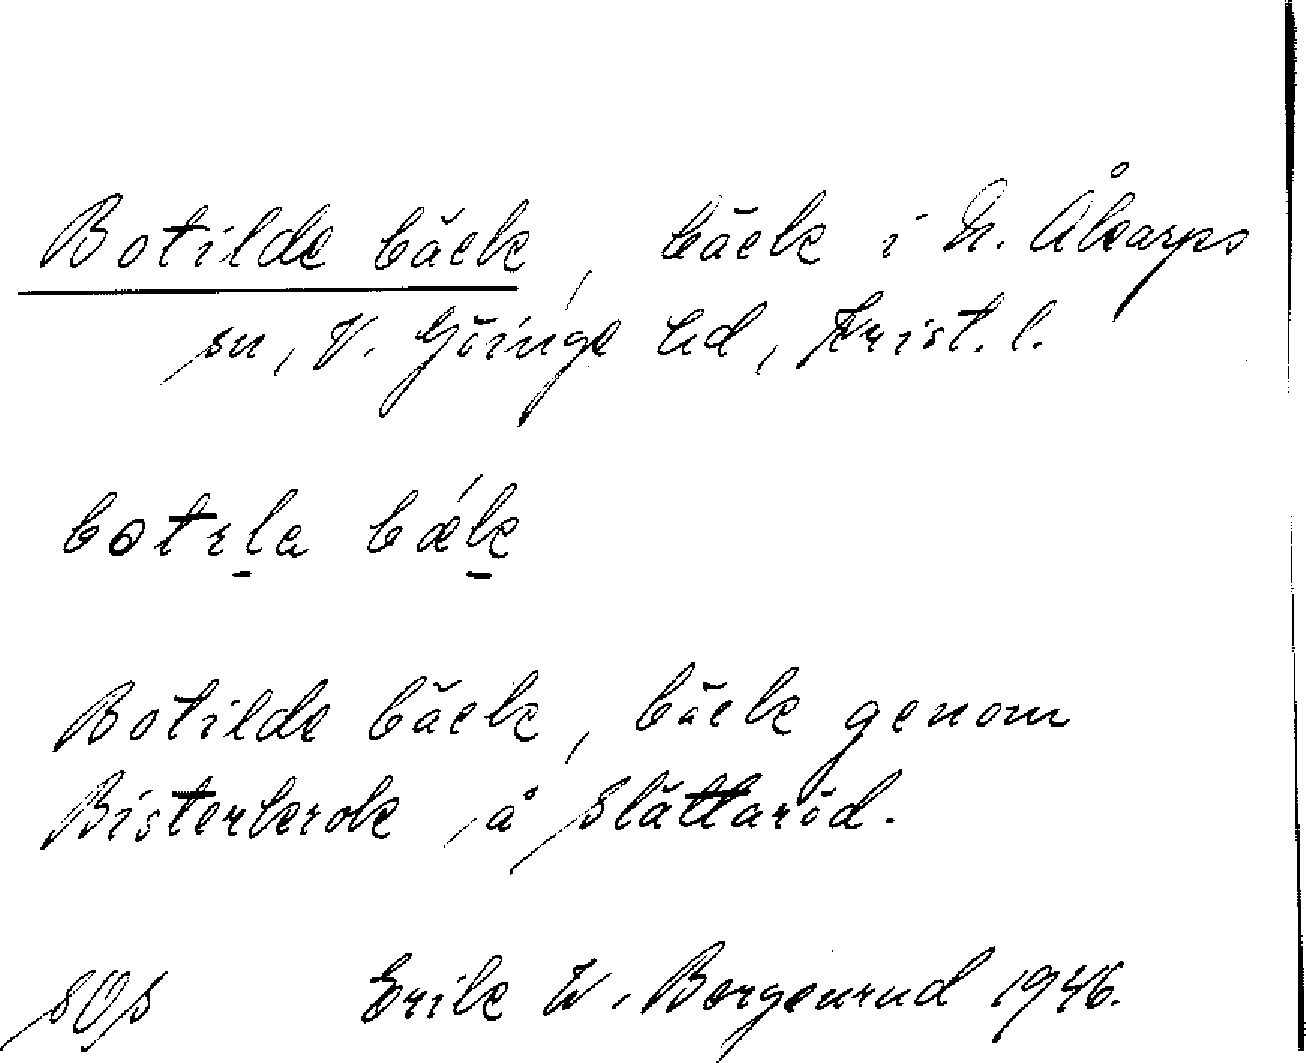 Botilde bäck, bäck i N. Åkarps
sn, V. Göinge hd, Krist. l.
botıla bǽk
Botilde bäck, bäck genom
Bisterkrok, å Slättaröd.
SOS Erik W. Bergenrud 1946.